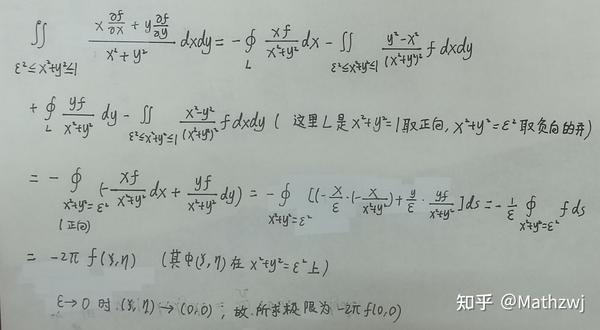 ∬_{ε²≤x²+y²≤1} (x ∂f/∂x + y ∂f/∂y)/(x²+y²) dxdy = -∮_L xf/(x²+y²) dx - ∬_{ε²≤x²+y²≤1} (y²-x²)/(x²+y²)² f dxdy
+ ∮_L yf/(x²+y²) dy - ∬_{ε²≤x²+y²≤1} (x²-y²)/(x²+y²)² f dxdy ( 这里L是x²+y²=1取正向, x²+y²=ε²取负向的并)
= -∮_{x²+y²=ε² (正向)} (-xf/(x²+y²) dx + yf/(x²+y²) dy) = -∮_{x²+y²=ε²} [(-x/ε·(-x/(x²+y²)) + y/ε · yf/(x²+y²)] ds = -1/ε ∮_{x²+y²=ε²} f ds
= -2π f(ξ,η) (其中(ξ,η)在x²+y²=ε²上)
ε→0 时 (ξ,η)→(0,0), 故所求极限为-2πf(0,0)
知乎 @Mathzwj